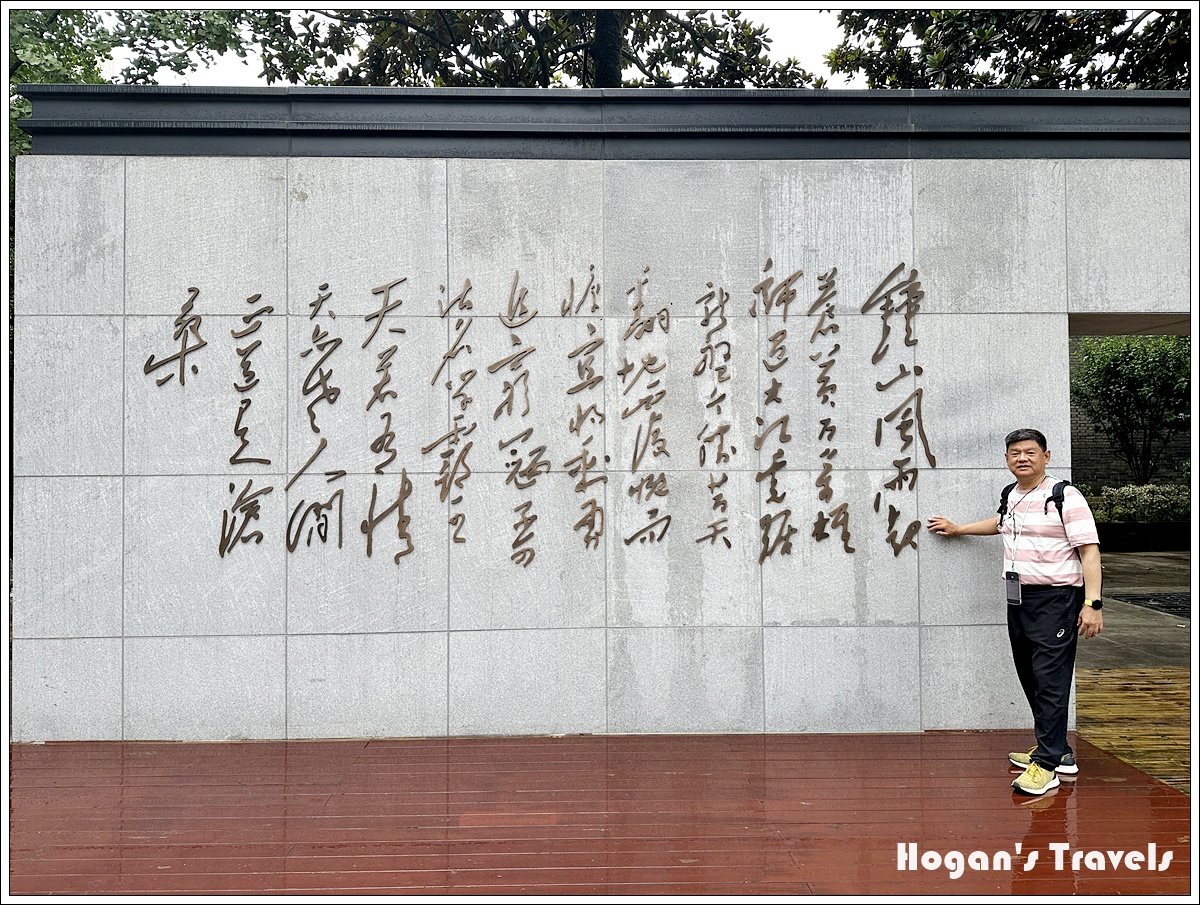 鍾山風雨起
蒼黃百萬雄
師過大江虎踞
龍盤今勝昔天
翻地覆慨而
慷宜將剩勇
追窮寇不可
沽名學霸王
天若有情
天亦老人間
正道是滄
桑
Hogan's Travels